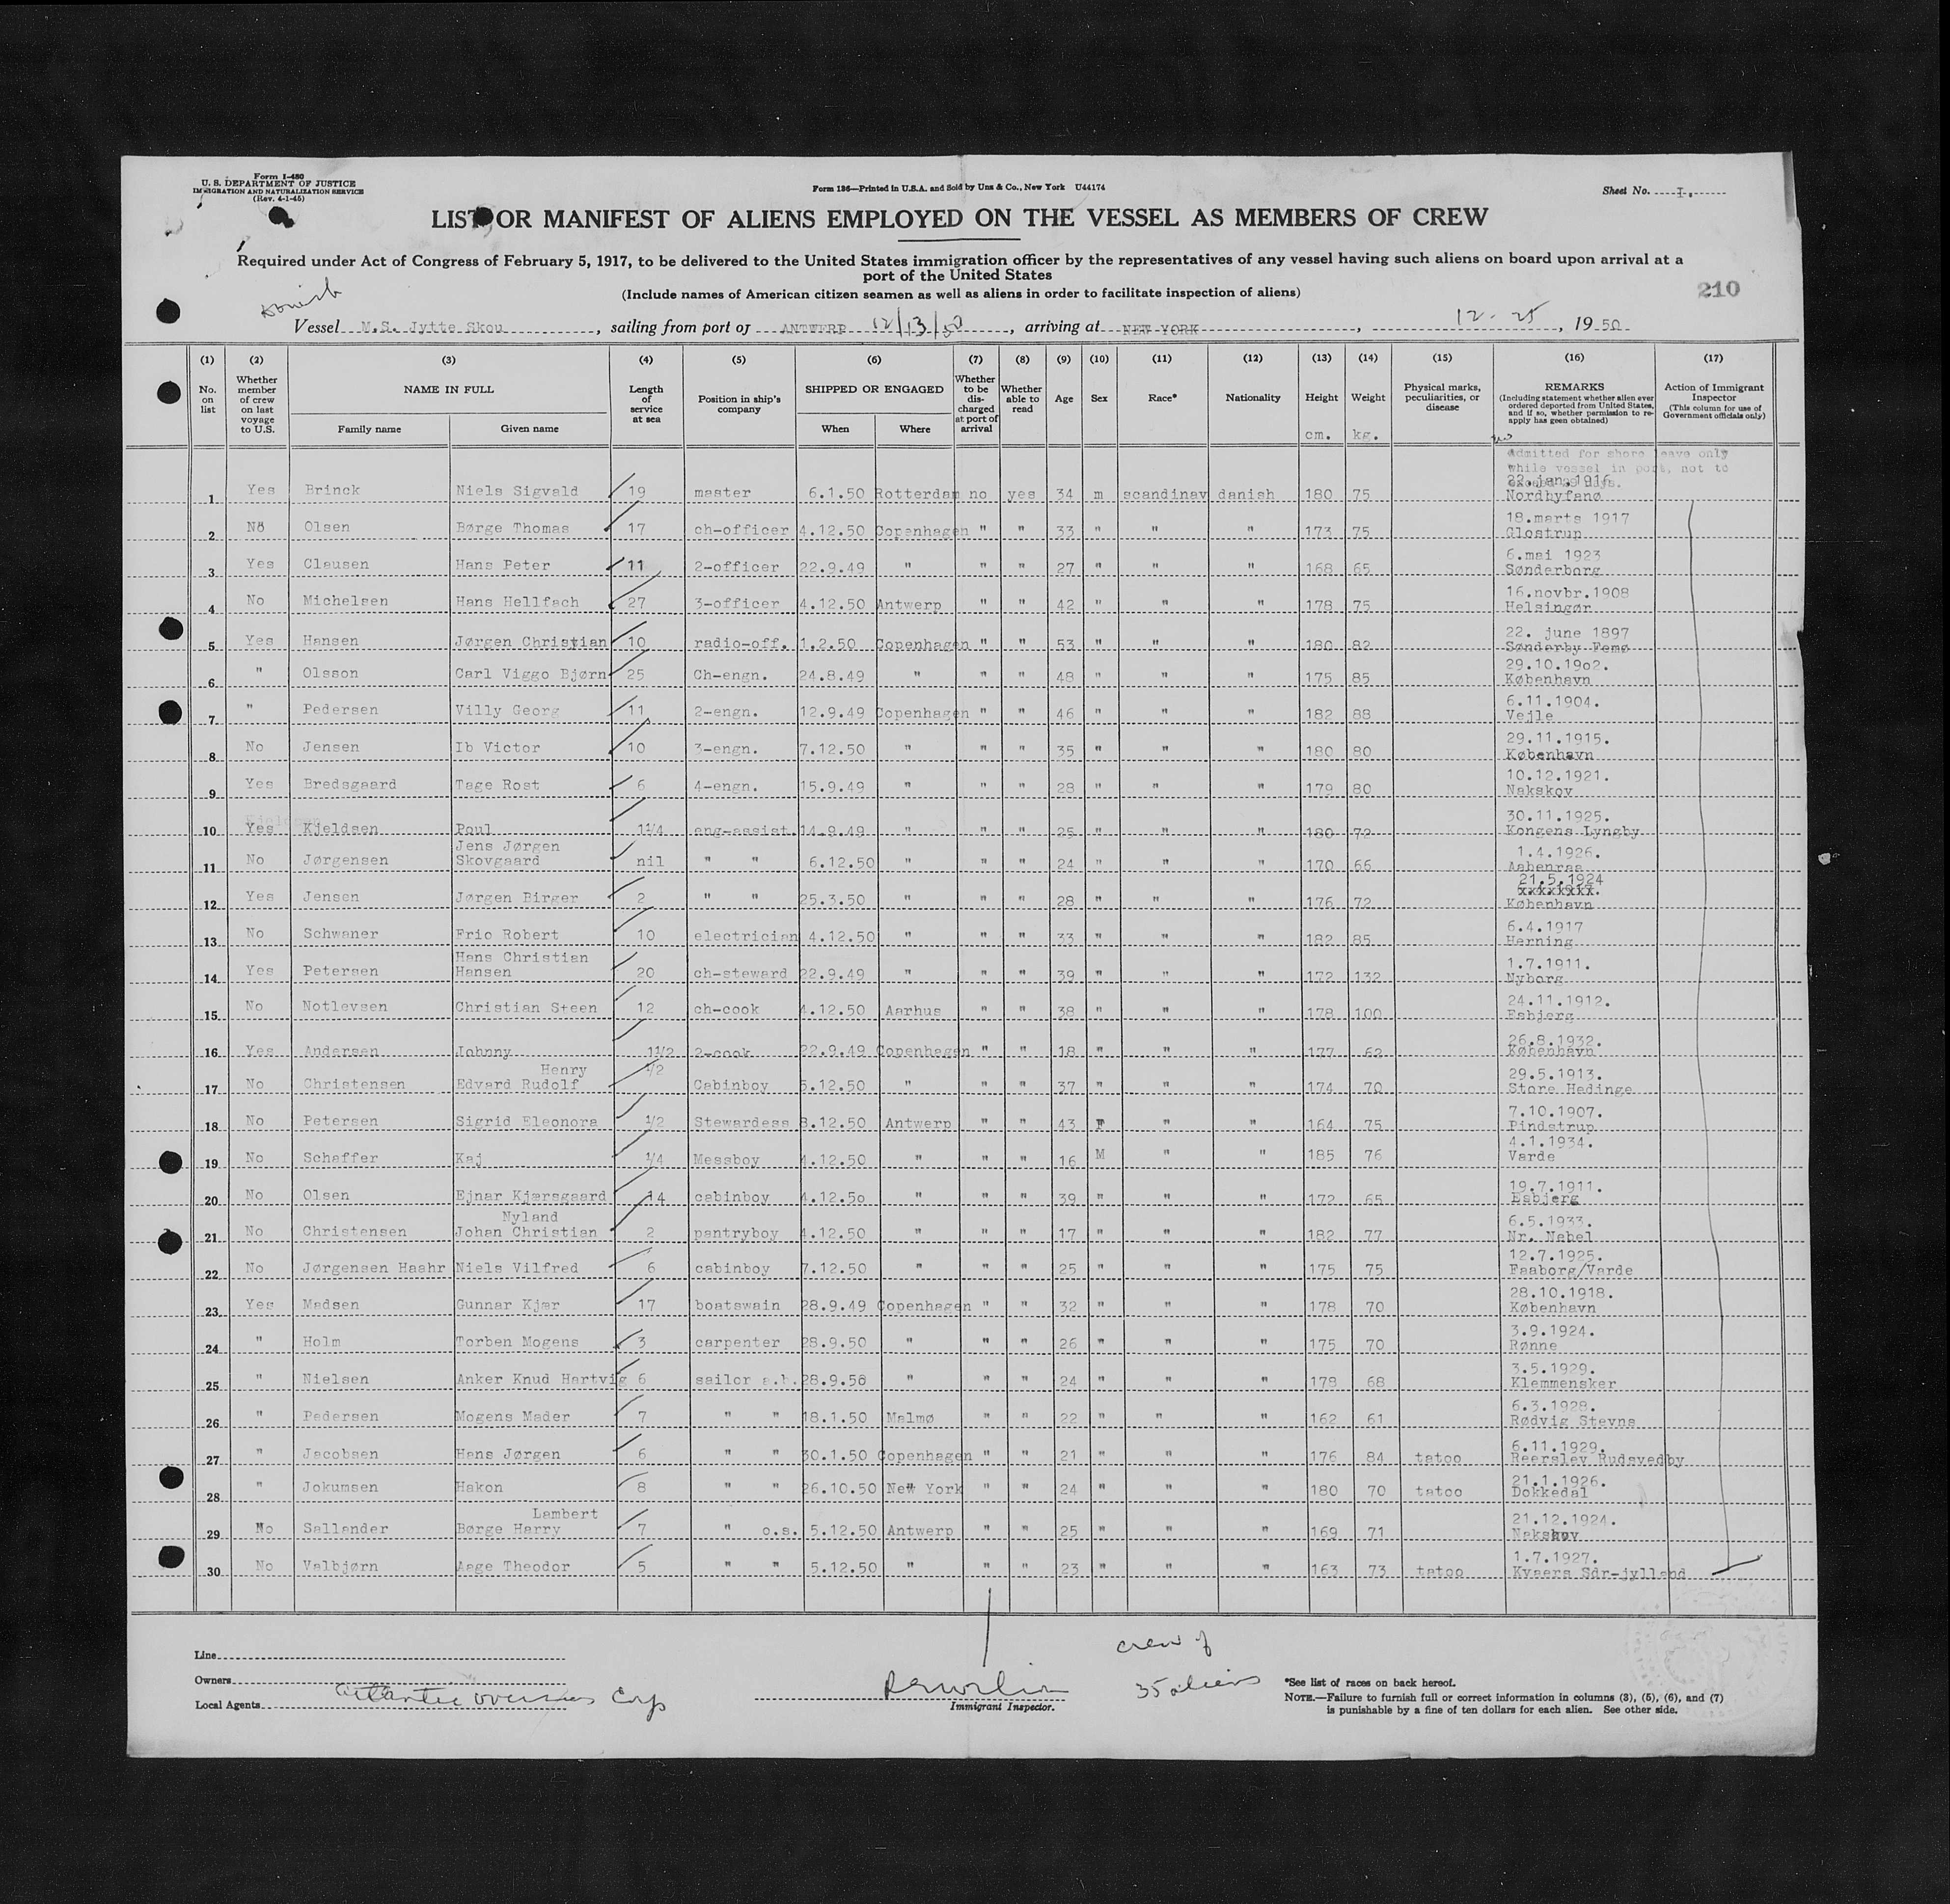 Form I-480
U. S. DEPARTMENT OF JUSTICE
IMMIGRATION AND NATURALIZATION SERVICE
(Rev. 4-1-45)
Form 126—Printed in U.S.A. and Sold by Unz & Co., New York U44174
Sheet No. I.
LIST OR MANIFEST OF ALIENS EMPLOYED ON THE VESSEL AS MEMBERS OF CREW
Required under Act of Congress of February 5, 1917, to be delivered to the United States immigration officer by the representatives of any vessel having such aliens on board upon arrival at a
port of the United States
(Include names of American citizen seamen as well as aliens in order to facilitate inspection of aliens)
210
Danish
Vessel M.S. Jytte Skou, sailing from port of ANTWERP 12/13/50, arriving at NEW YORK, 12-25, 1950
(1) (2) (3) (4) (5) (6) (7) (8) (9) (10) (11) (12) (13) (14) (15) (16) (17)
No. on list
Whether member of crew on last voyage to U.S.
NAME IN FULL
Family name Given name
Length of service at sea
Position in ship's company
SHIPPED OR ENGAGED
When Where
Whether to be discharged at port of arrival
Whether able to read
Age
Sex
Race*
Nationality
Height cm.
Weight kg.
Physical marks, peculiarities, or disease
REMARKS
(Including statement whether alien ever ordered deported from United States, and if so, whether permission to reapply has been obtained)
Action of Immigrant Inspector
(This column for use of Government officials only)
Admitted for shore leave only
while vessel in port, not to
1 Yes Brinck Niels Sigvald 19 master 6.1.50 Rotterdam no yes 34 m scandinav danish 180 75 22.jan.1916. Nordbyfanø
2 No Olsen Børge Thomas 17 ch-officer 4.12.50 Copenhagen " " 33 " " " 173 75 18.marts 1917 Glostrup
3 Yes Clausen Hans Peter 11 2-officer 22.9.49 " " " 27 " " " 168 65 6.mai 1923 Sønderborg
4 No Michelsen Hans Hellfach 27 3-officer 4.12.50 Antwerp " " 42 " " " 178 75 16.novbr.1908 Helsingør
5 Yes Hansen Jørgen Christian 10 radio-off. 1.2.50 Copenhagen " " 53 " " " 180 82 22. june 1897 Sønderby Femø
6 " Olsson Carl Viggo Bjørn 25 Ch-engn. 24.8.49 " " " 48 " " " 175 85 29.10.19o2. København
7 " Pedersen Villy Georg 11 2-engn. 12.9.49 Copenhagen " " 46 " " " 182 88 6.11.1904. Vejle
8 No Jensen Ib Victor 10 3-engn. 7.12.50 " " " 35 " " " 180 80 29.11.1915. København
9 Yes Bredsgaard Tage Rost 6 4-engn. 15.9.49 " " " 28 " " " 179 80 10.12.1921. Nakskov
10 Yes Kjeldsen Poul 1 1/4 eng-assist. 14.9.49 " " " 25 " " " 180 72 30.11.1925. Kongens Lyngby
11 No Jørgensen Jens Jørgen Skovgaard nil " " 6.12.50 " " " 24 " " " 170 66 1.4.1926. Aabenraa
12 Yes Jensen Jørgen Birger 2 " " 25.3.50 " " " 28 " " " 176 72 21.5.1924 xxxxxxxx. København
13 No Schwaner Eric Robert 10 electrician 4.12.50 " " " 33 " " " 182 85 6.4.1917 Herning
14 Yes Petersen Hans Christian Hansen 20 ch-steward 22.9.49 " " " 39 " " " 172 132 1.7.1911. Nyborg
15 No Notlevsen Christian Steen 12 ch-cook 4.12.50 Aarhus " " 38 " " " 178 100 24.11.1912. Esbjerg
16 Yes Andersen Johnny 1 1/2 2-cook 22.9.49 Copenhagen " " 18 " " " 177 62 26.8.1932. København
17 No Christensen Henry Edvard Rudolf 1/2 Cabinboy 5.12.50 " " " 37 " " " 174 70 29.5.1913. Store Hedinge
18 No Petersen Sigrid Eleonora 1/2 Stewardess 8.12.50 Antwerp " " 43 F " " 164 75 7.10.1907. Pindstrup
19 No Schaffer Kaj 1/4 Messboy 4.12.50 " " " 16 M " " 185 76 4.1.1934. Varde
20 No Olsen Ejnar Kjærsgaard 14 cabinboy 4.12.5o " " " 39 " " " 172 65 19.7.1911. Esbjerg
21 No Christensen Nyland Johan Christian 2 pantryboy 4.12.50 " " " 17 " " " 182 77 6.5.1933. Nr. Nebel
22 No Jørgensen Haahr Niels Vilfred 6 cabinboy 7.12.50 " " " 25 " " " 175 75 12.7.1925. Faaborg/Varde
23 Yes Madsen Gunnar Kjær 17 boatswain 28.9.49 Copenhagen " " 32 " " " 178 70 28.10.1918. København
24 " Holm Torben Mogens 3 carpenter 28.9.50 " " " 26 " " " 175 70 3.9.1924. Rønne
25 " Nielsen Anker Knud Hartvig 6 sailor a.b. 28.9.50 " " " 24 " " " 178 68 3.5.1929. Klemmensker
26 " Pedersen Mogens Mader 7 " " 18.1.50 Malmø " " 22 " " " 162 61 6.3.1928. Rødvig Stevns
27 " Jacobsen Hans Jørgen 6 " " 30.1.50 Copenhagen " " 21 " " " 176 84 tatoo 6.11.1929. Reerslev Rudsvedby
28 " Jokumsen Hakon 8 " " 26.10.50 New York " " 24 " " " 180 70 tatoo 21.1.1926. Dokkedal
29 No Sallander Lambert Børge Harry 7 " o.s. 5.12.50 Antwerp " " 25 " " " 169 71 21.12.1924. Nakskov
30 No Valbjørn Aage Theodor 5 " " 5.12.50 " " " 23 " " " 163 73 tatoo 1.7.1927. Kvaers Sdr-jylland
Line
Owners
Local Agents Atlantic Overseas Corp
Immigrant Inspector.
crew of
35 aliens
*See list of races on back hereof.
NOTE.—Failure to furnish full or correct information in columns (3), (5), (6), and (7)
is punishable by a fine of ten dollars for each alien. See other side.